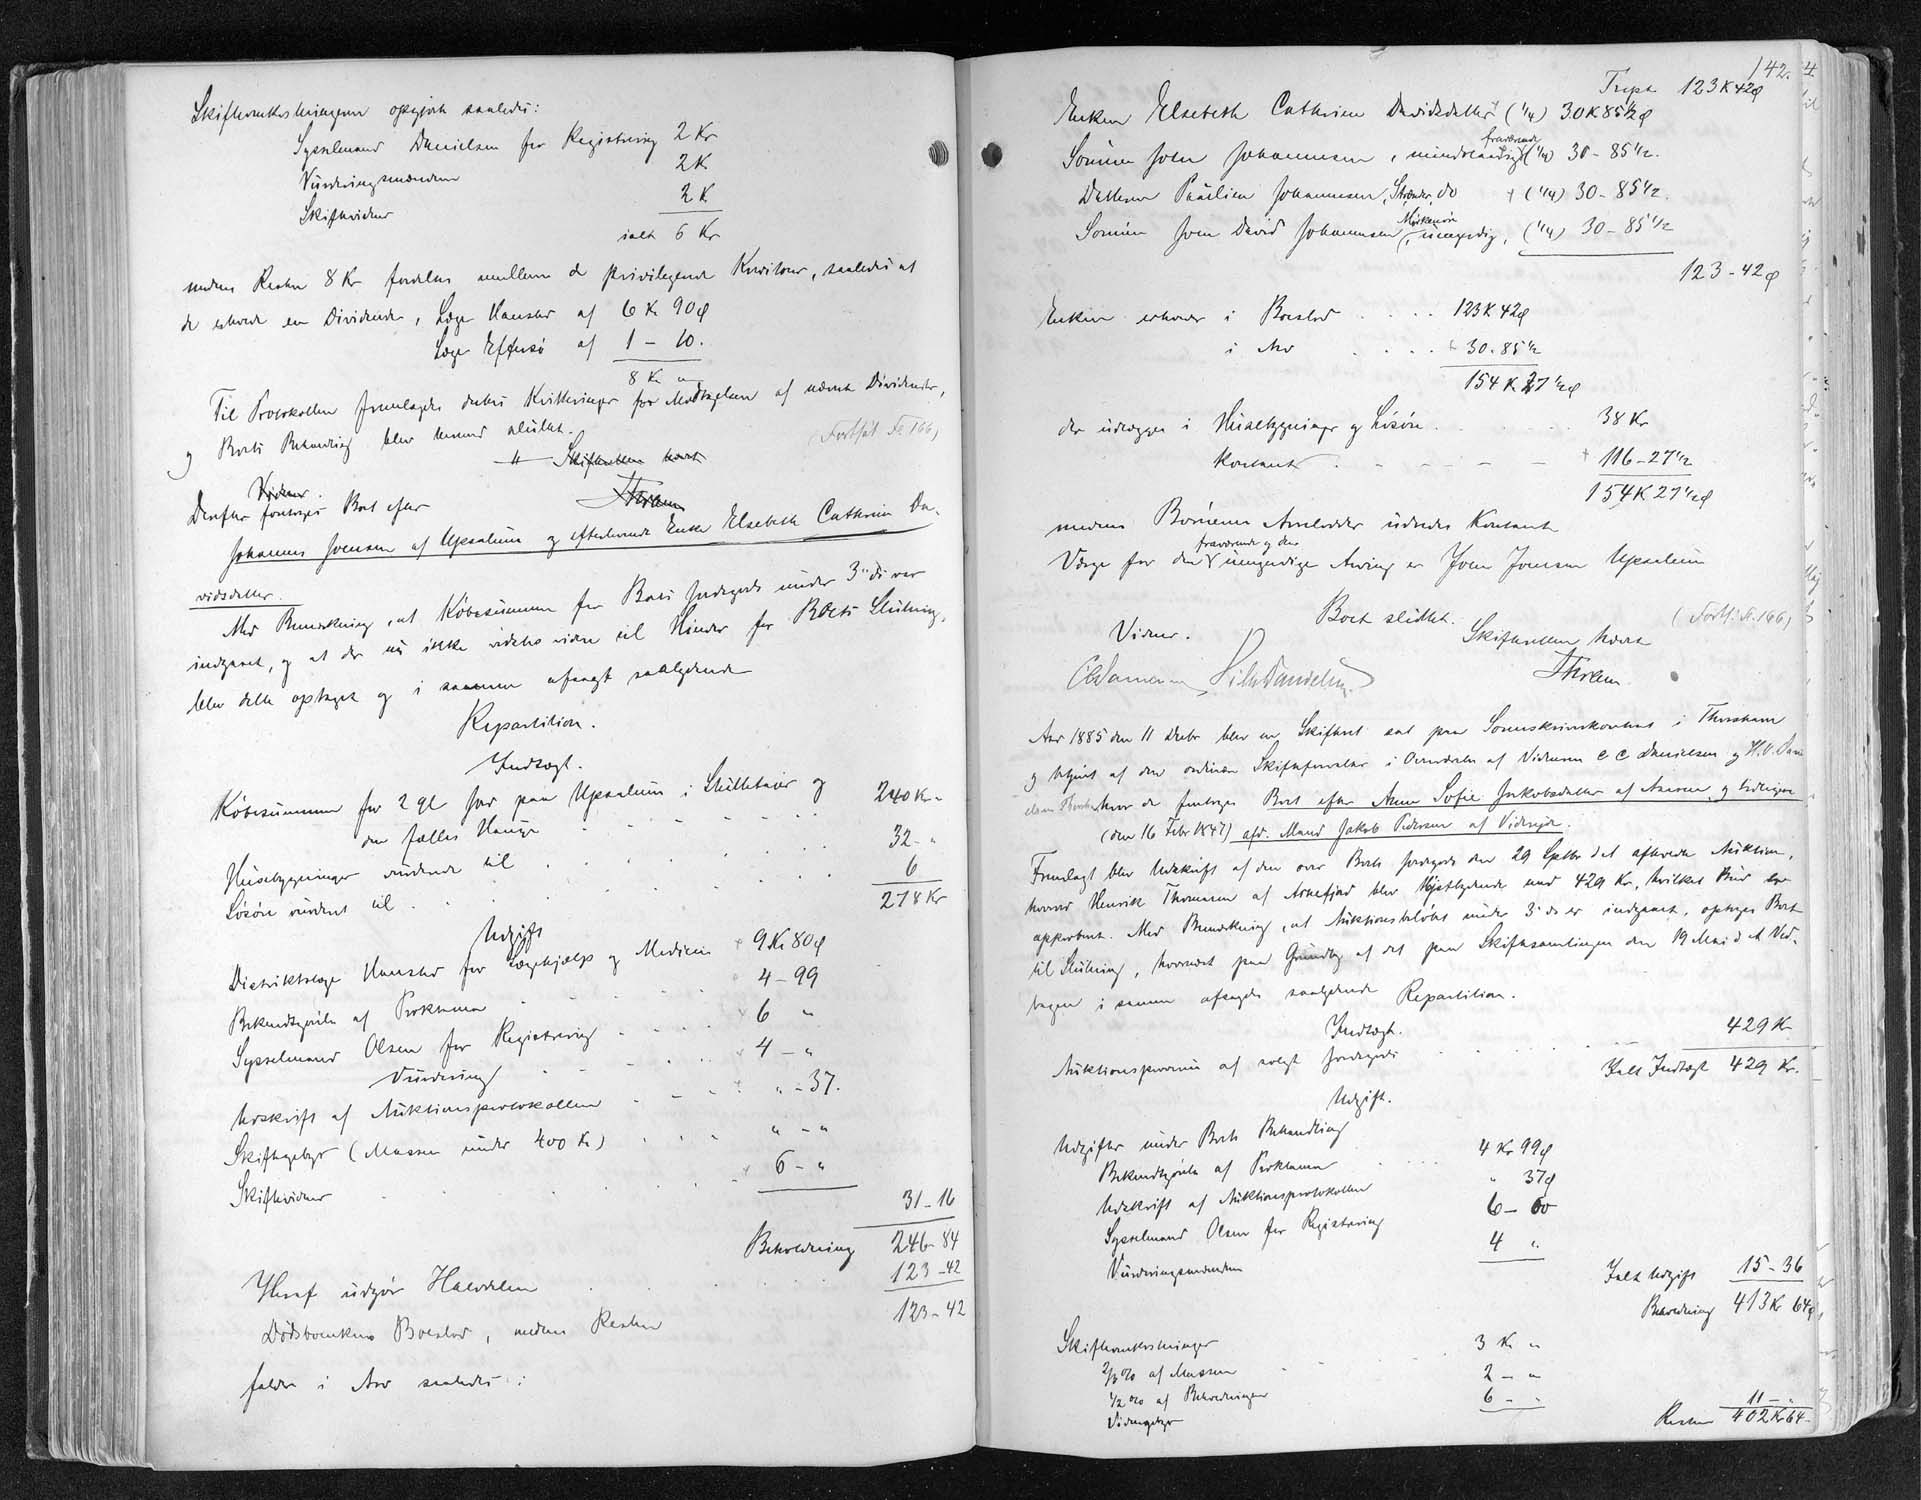 Skifteomkostningerne opgjort saaledes:
Sysselmand Danielsen for Registrering 2 Kr
Vurderingsmændene 2 K
Skiftevidner 2 K
ialt 6 Kr
medens Resten 8 Kr fordeles mellem de privilegerede Kreditorer, saaledes at
de erholde en Dividende, Læge Hansker af 6 Kr 90 ø
Læge Effersø af 1 – 10.
8 Kr "
Til Protokollen fremlagdes disses Kvitteringer for Modtagelsen af nævnte Dividender,
og Boets Behandling blev hermed sluttet.
(Fortsat Fol 166)
Skifteretten hævet
Vidner.
Derefter foretoges Boet efter
Johannes Joensen af Uppsalum og efterlevende Enke Elsebeth Cathrine Da-
vidsdatter.
Med Bemærkning, at Købesummen for Boets Jordegods under 3' ds var
indgaaet, og at der nu ikke vidstes videre til Hinder for Boets Slutning,
blev dette optaget og i samme afsagt saalydende
Repartition.
Indtægt.
Købesummen for 2 gl Jor paa Uppsalum i Skilletajer og
den fælles Hauge 240 Kr "
Husebygninger vurderede til 32 - "
Løsøre vurderet til 6
278 Kr
Udgift
Distriktslæge Hansker for Lægehjælp og Medicin 9 Kr 80 ø
Bekendtgørelse af Proklama 4 – 99
Sysselmand Olsen for Registrering 6 "
Vurdering 4 – "
Udskrift af Auktionsprotokollen " – 37.
Skiftegebyr (Massen under 400 Kr) " – "
Skiftevidner 6 – "
31 – 16
Beholdning 246 – 84
Heraf udgør Halvdelen 123 – 42
Dødsboenkens Boeslod, medens Resten 123 – 42
falder i Arv saaledes:
142.
Trspt 123 K 42 ø
Enken Elsebeth Cathrine Davidsdatter (1/4) 30 K 85 1/2 ø
fraværende
Sønnen Joen Johannesen, myndig (1/4) 30 – 85 1/2.
Datteren Pauline Johannesen, Strænder, do (1/4) 30 – 85 1/2.
Sønnen Joen David Johannesen, umyndig, (1/4) 30 – 85 1/2
123 – 42 ø
Enken erholder i Boeslod 123 K 42 ø
i Arv 30 - 85 1/2
154 K 27 1/2 ø
der udlægges i Husebygninger og Løsøre 38 Kr
Kontant 116 – 27 1/2
154 K 27 1/2 ø
medens Børnenes Arvelodder udredes Kontant
fraværende og den
Værge for den umyndige Arving er Joen Joensen Uppsalum
Boet sluttet.
(Forts: Fl. 166)
Vidner. Skifteretten hævet
Aar 1885 den 11 Decbr blev en Skifteret sat paa Sorenskriverkontoret i Thorshavn
og betjent af den ordinære Skifteforvalter i Overværelse af Vidnerne C C Danielsen og H. V. Dani
elsen Thorshavn hvor da foretoges Boet efter Anne Sofie Jakobsdatter af Axarum og tidligere
(den 16 Febr 1847) afd. Mand Jakob Pedersen af Viderejde.
Fremlagt blev Udskrift af den over Boets Jordegods den 29 Septbr d A afholdte Auktion,
hvorved Henrik Thomasen af Arnefjord blev Højstbydende med 429 Kr, hvilket Bud er
approberet. Med Bemærkning, at Auktionsbeløbet under 3' ds er indgaaet, optoges Boet
til Slutning, hvornæst paa Grundlag af det paa Skiftesamlingen den 19 Mai d A Ved-
tagne i samme afsagdes saalydende Repartition.
Indtægt.
Auktionsprovenu af solgt Jordegods 429 K
Ialt Indtægt 429 Kr.
Udgift.
Udgifter under Boets Behandling
Bekendtgørelse af Proklama 4 Kr 99 ø
Udskrift af Auktionsprotokollen " 37 ø
Sysselmand Olsen for Registrering 6 – 00
Vurderingsmændene 4 "
Ialt Udgift 15 – 36
Beholdning 413 Kr 64 ø
Skifteomkostninger
2/3 % af Massen 3 Kr "
1/2 % af Beholdningen 2 – "
Vidnegebyr 6 – "
11 – "
Resten 402 Kr 64